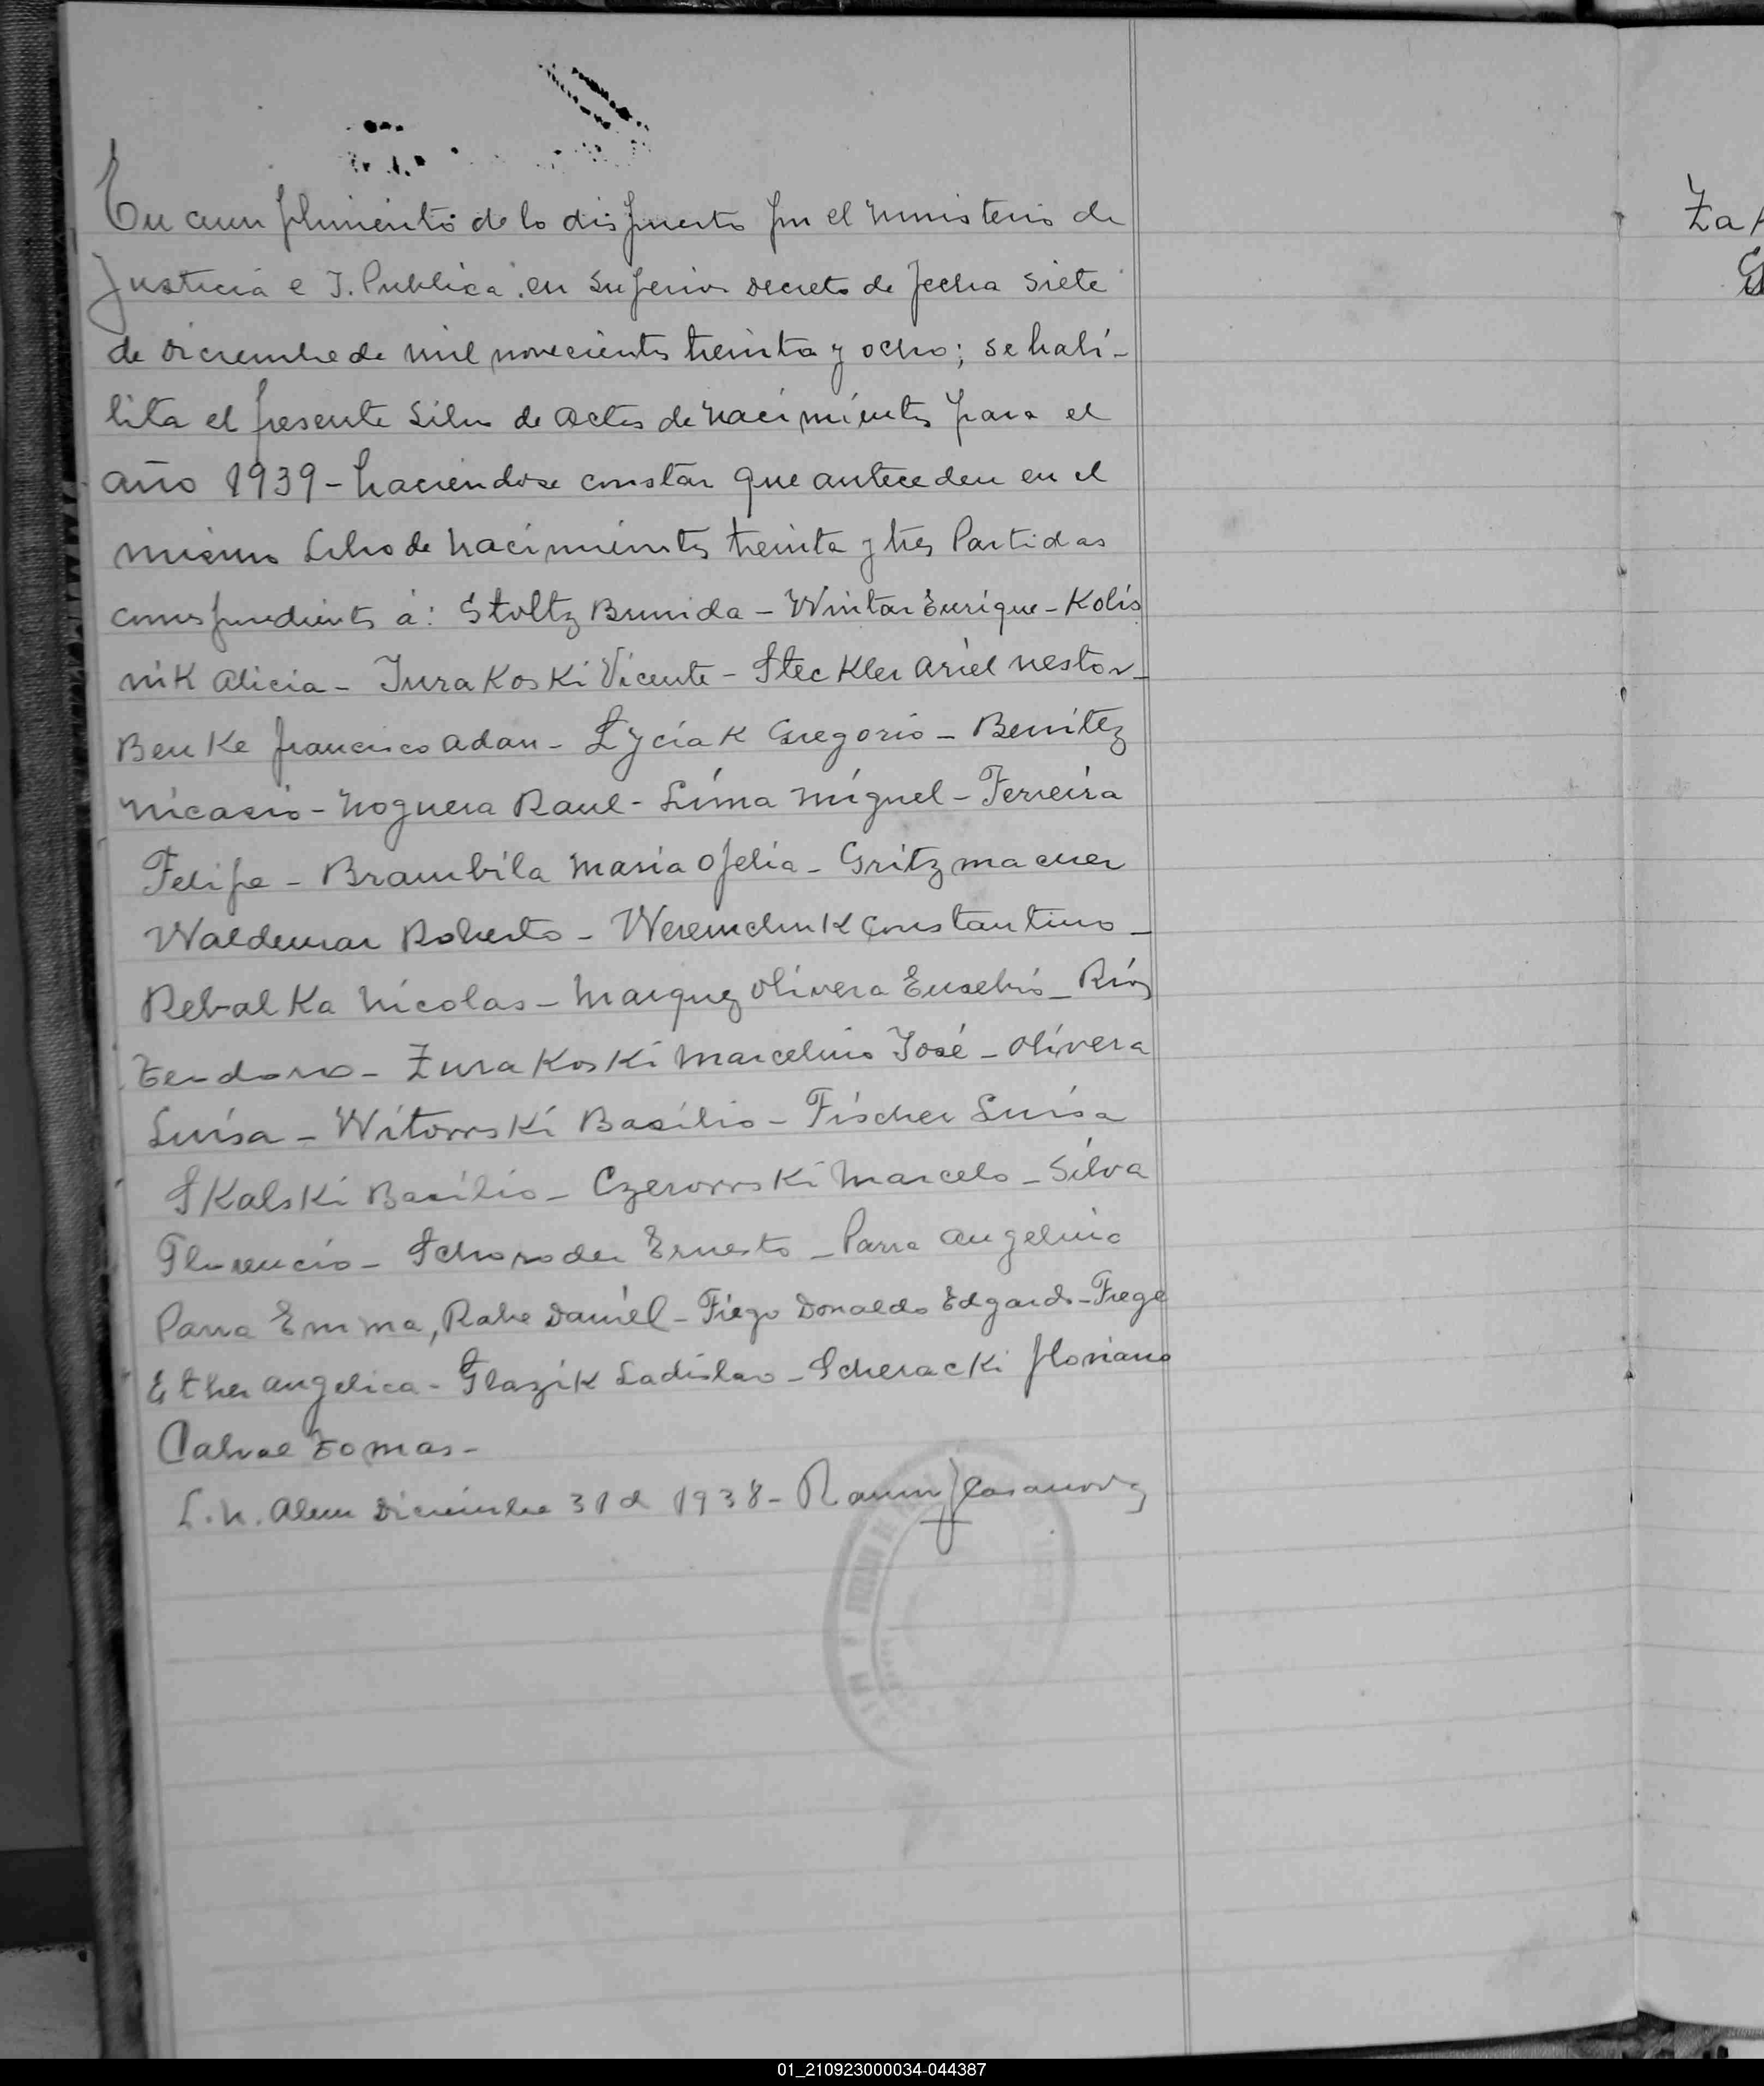 En cumplimiento de lo dispuesto por el Ministerio de
Justicia e I. Publica en Superior Decreto de fecha Siete
de Diciembre de mil novecientos treinta y ocho; se habi-
lita el presente Libro de Actas de Nacimientos para el
año 1939 - haciendose constar que anteceden en el
mismo Libro de Nacimientos treinta y tres Partidas
correspondientes á: Stoltz Brunida - Wintar Enrique - Kolis
nik Alicia - Jurakoski Vicente - Steckler Ariel Nestor -
Benke Francisco Adan - Lyciak Gregorio - Benitez
Nicasio - Noguera Raul - Lima Miguel - Ferreira
Felipe - Brambila Maria Ofelia - Gritzmacher
Waldemar Roberto - Weremchuk Constantino -
Rebalka Nicolas - Marquez Olivera Eusebio - Ríos
Teodoro - Zurakoski Marcelino José - Olivera
Luisa - Witowski Basilio - Fischer Luisa
Skalski Basilio - Czerowski Marcelo - Silva
Florencio - Schoroder Ernesto - Parra Angelina
Parra Emma, Rahe Daniel - Fiego Donaldo Edgardo - Frege
Ether Angelica - Glazik Ladislao - Scheracki Floriano
Cabral Tomas -
L. N. Alem Diciembre 31 d 1938 - Ramon Casanova
Za
01_210923000034-044387